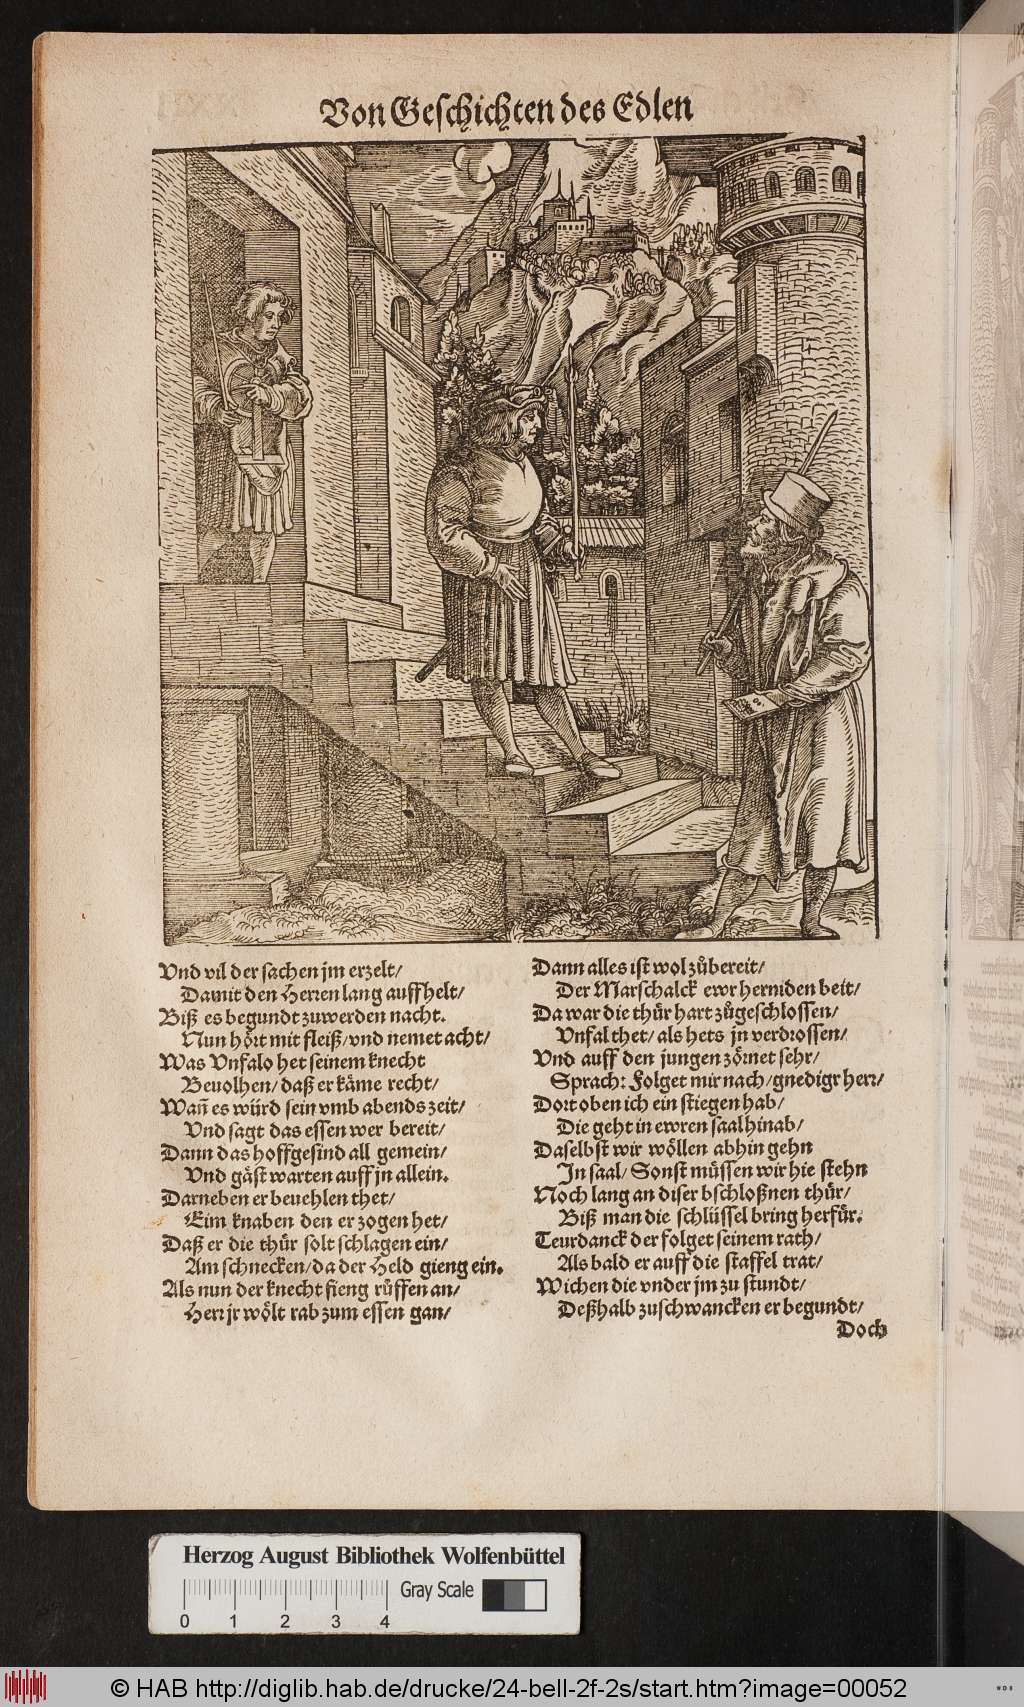 Von Geschichten des Edlen
Vnd vil der sachen jm erzelt/
Damit den Herren lang auffhelt/
Biß es begundt zuwerden nacht.
Nun hört mit fleiß/vnd nemet acht/
Was Vnfalo het seinem knecht
Beuolhen/daß er käme recht/
Wañ es würd sein vmb abends zeit/
Vnd sagt das essen wer bereit/
Dann das hoffgesind all gemein/
Vnd gäst warten auff jn allein.
Darneben er beuehlen thet/
Eim knaben den er zogen het/
Daß er die thür solt schlagen ein/
Am schnecken/da der Held gieng ein.
Als nun der knecht fieng růffen an/
Herr jr wölt rab zum essen gan/
Dann alles ist wol zůbereit/
Der Marschalck ewr herniden beit/
Da war die thür hart zůgeschlossen/
Vnfal thet/als hets jn verdrossen/
Vnd auff den jungen zörnet sehr/
Sprach: Folget mir nach/gnedigr herr/
Dort oben ich ein stiegen hab/
Die geht in ewren saal hinab/
Daselbst wir wöllen abhin gehn
In saal/Sonst müssen wir hie stehn
Noch lang an diser bschloßnen thür/
Biß man die schlüssel bring herfür.
Teurdanck der folget seinem rath/
Als bald er auff die staffel trat/
Wichen die vnder jm zu stundt/
Deßhalb zuschwancken er begundt/
Doch
Herzog August Bibliothek Wolfenbüttel
Gray Scale
0 1 2 3 4
© HAB http://diglib.hab.de/drucke/24-bell-2f-2s/start.htm?image=00052